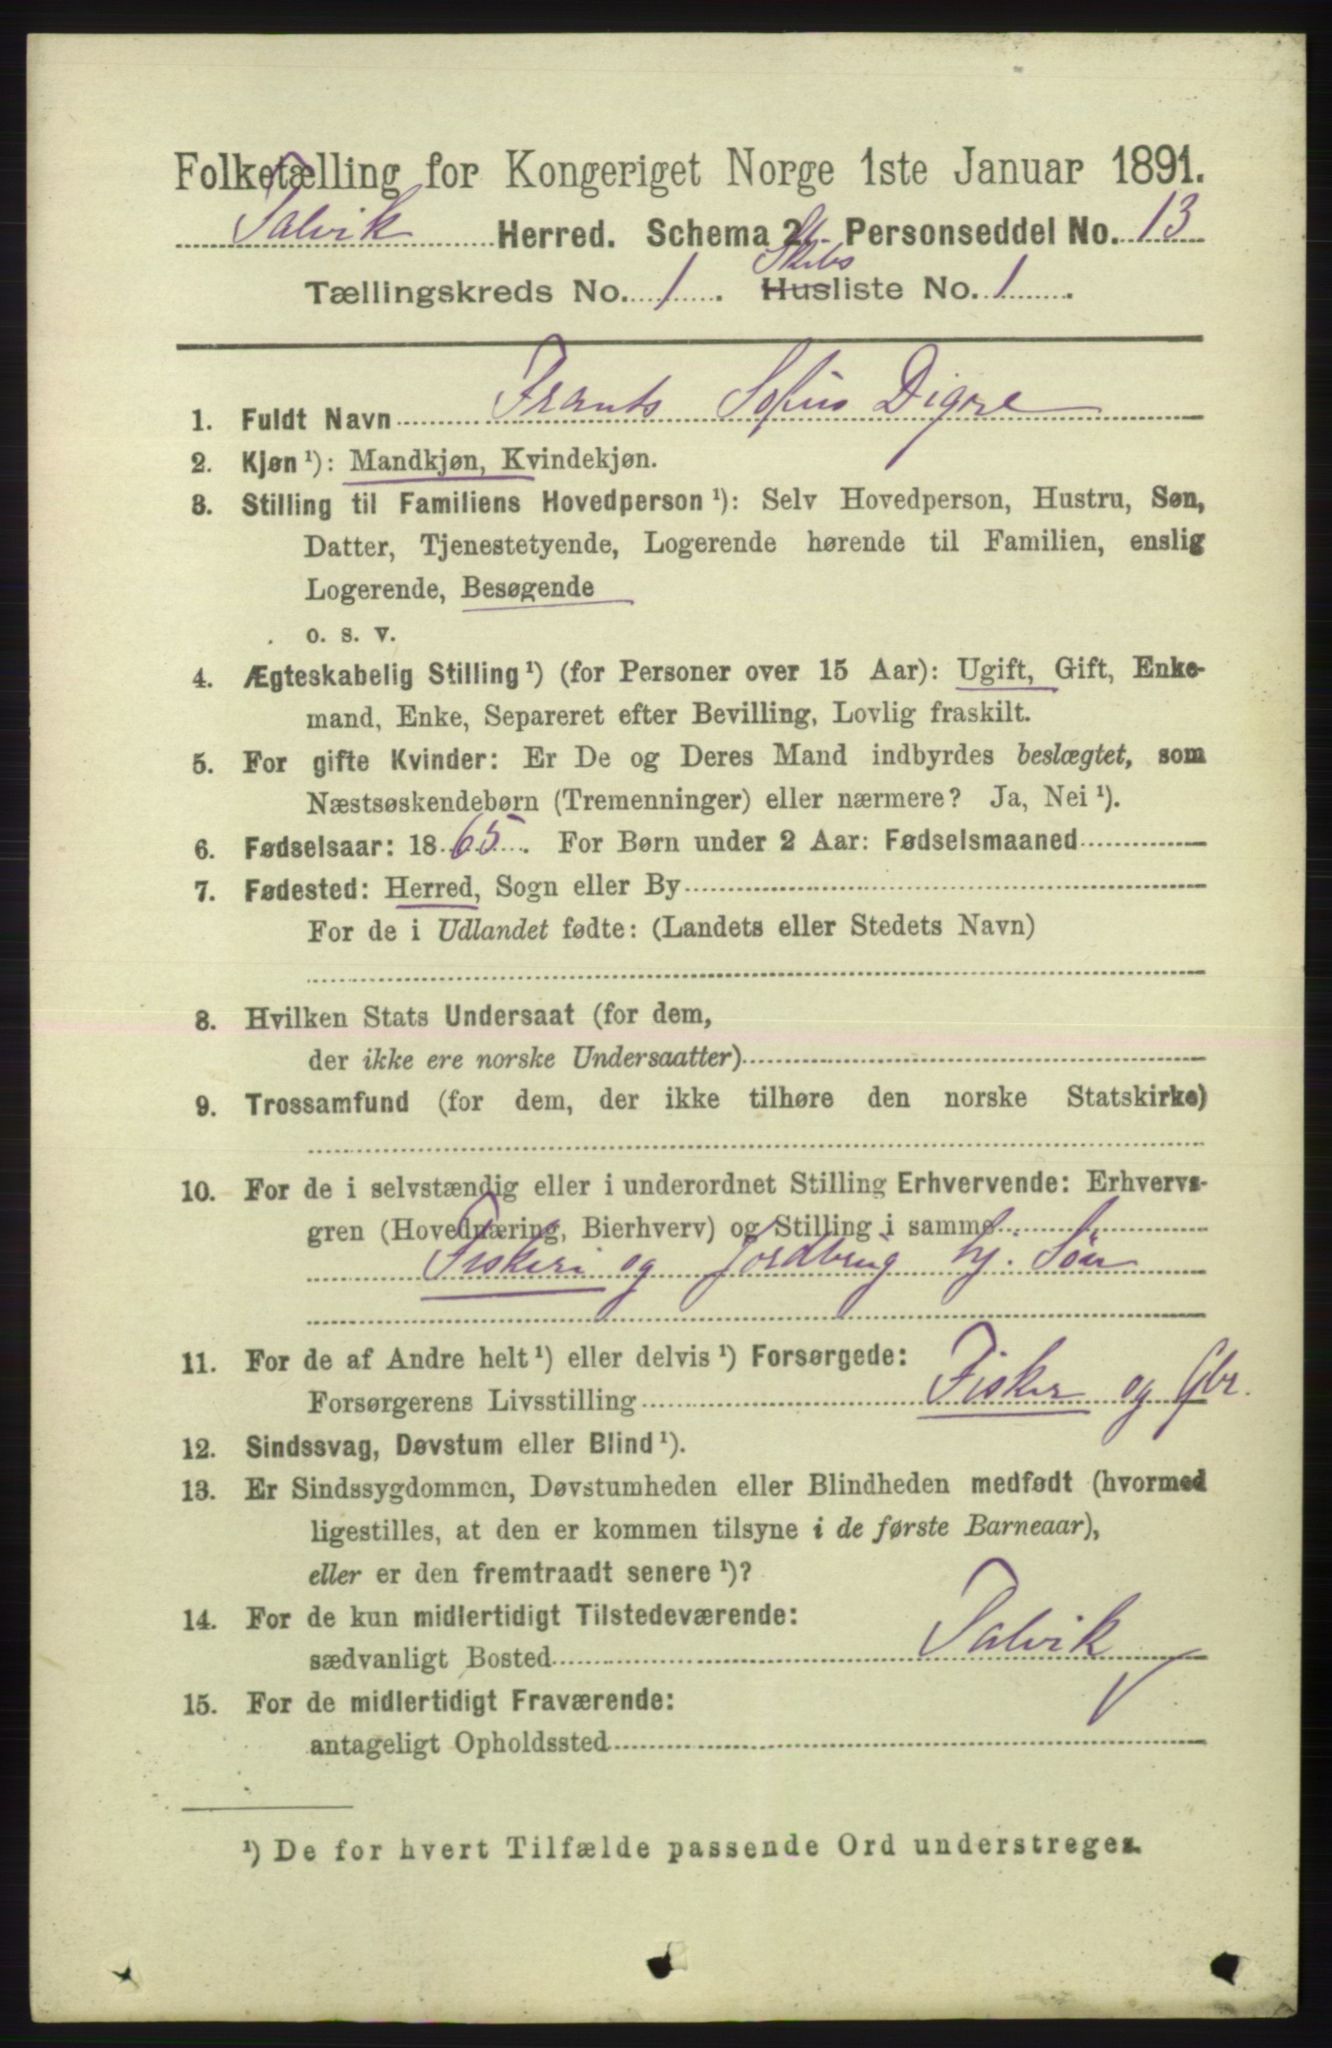 Folketælling for Kongeriget Norge 1ste Januar 1891.
Talvik Herred. Schema 2. Personseddel No. 13
Tællingskreds No. 1. Skibs Husliste No. 1.
1. Fuldt Navn Frants Sofius Digre
2. Kjøn ¹): Mandkjøn, Kvindekjøn.
3. Stilling til Familiens Hovedperson ¹): Selv Hovedperson, Hustru, Søn,
Datter, Tjenestetyende, Logerende hørende til Familien, enslig
Logerende, Besøgende
o. s. v.
4. Ægteskabelig Stilling ¹) (for Personer over 15 Aar): Ugift, Gift, Enke-
mand, Enke, Separeret efter Bevilling, Lovlig fraskilt.
5. For gifte Kvinder: Er De og Deres Mand indbyrdes beslægtet, som
Næstsøskendebørn (Tremenninger) eller nærmere? Ja, Nei ¹).
6. Fødselsaar: 1865. For Børn under 2 Aar: Fødselsmaaned
7. Fødested: Herred, Sogn eller By
For de i Udlandet fødte: (Landets eller Stedets Navn)
8. Hvilken Stats Undersaat (for dem,
der ikke ere norske Undersaatter)
9. Trossamfund (for dem, der ikke tilhøre den norske Statskirke)
10. For de i selvstændig eller i underordnet Stilling Erhvervende: Erhvervs-
gren (Hovednæring, Bierhverv) og Stilling i samme
Fiskeri og Jordbrug hj. Søn
11. For de af Andre helt ¹) eller delvis ¹) Forsørgede:
Forsørgerens Livsstilling Fisker og Gbr.
12. Sindssvag, Døvstum eller Blind ¹).
13. Er Sindssygdommen, Døvstumheden eller Blindheden medfødt (hvormed
ligestilles, at den er kommen tilsyne i de første Barneaar),
eller er den fremtraadt senere ¹)?
14. For de kun midlertidigt Tilstedeværende:
sædvanligt Bosted Talvik
15. For de midlertidigt Fraværende:
antageligt Opholdssted
¹) De for hvert Tilfælde passende Ord understreges.